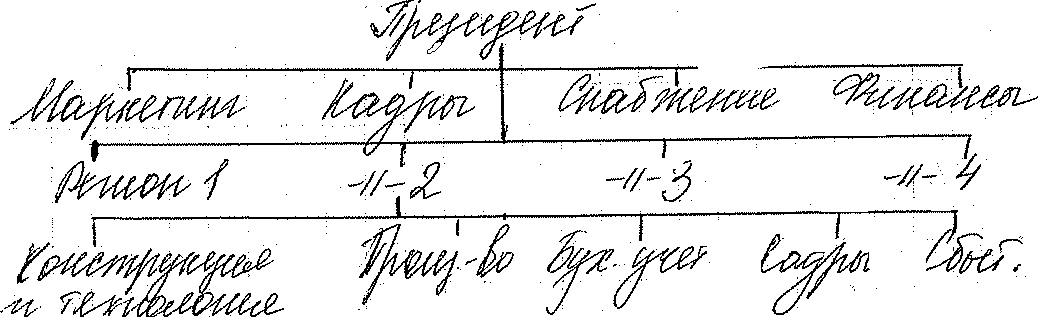 Президент
Маркетинг Кадры Снабжение Финансы
Регион 1 -||- 2 -||- 3 -||- 4
Конструкция Произ-во Бух. учет Кадры Сбыт.
и технология